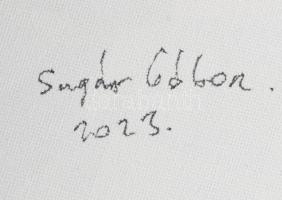 Sugár Gábor.
2023.